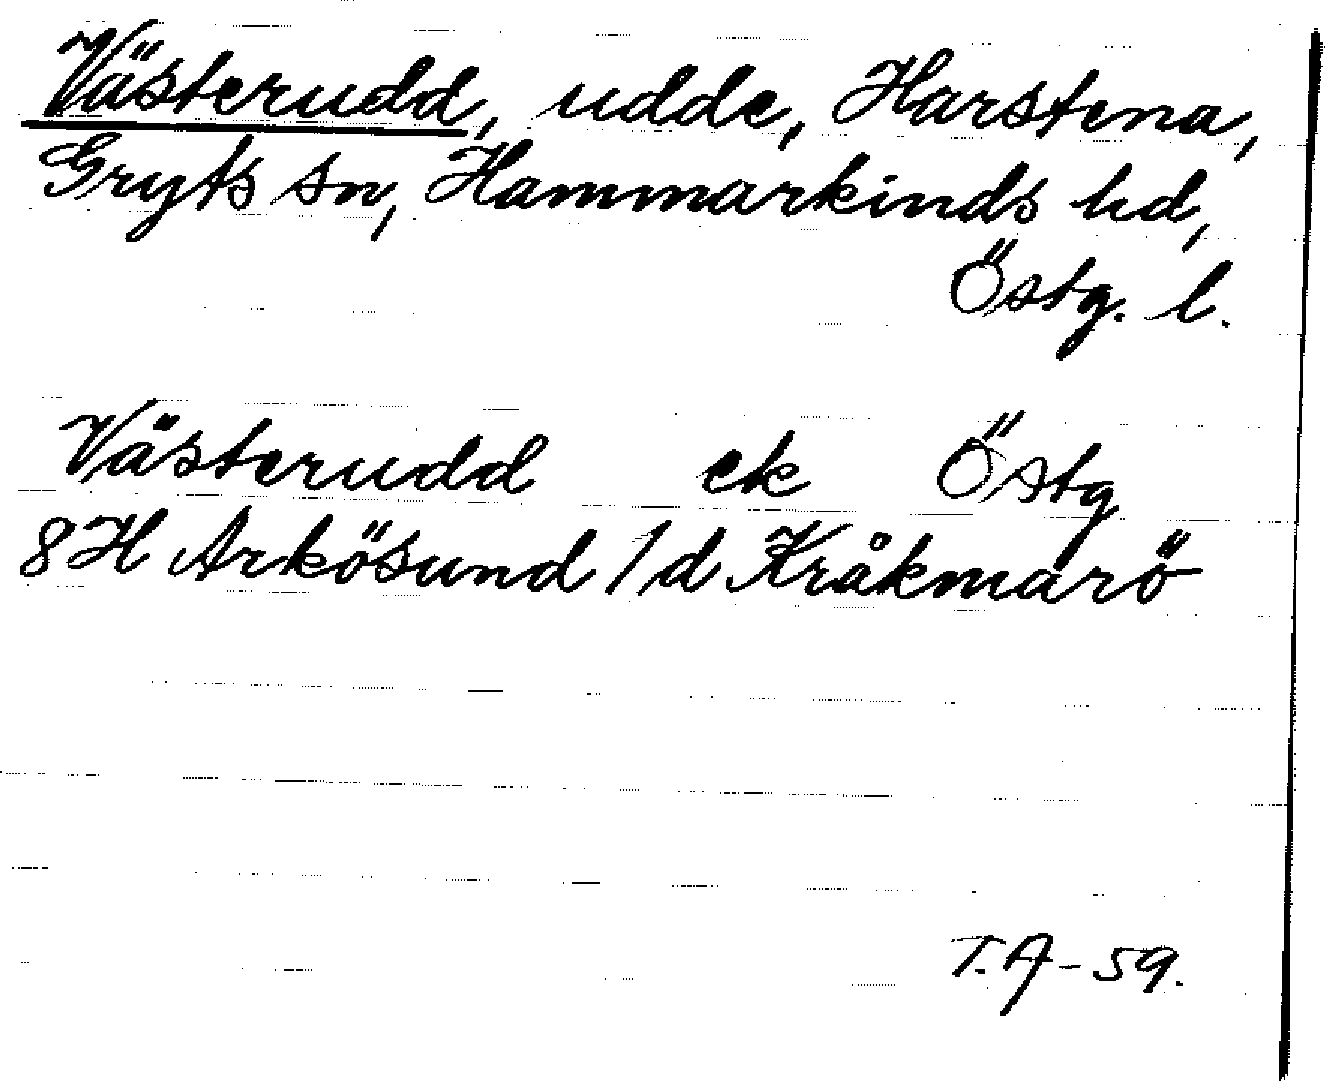 Västerudd, udde, Harstena,
Gryts sn, Hammarkinds hd,
Östg. l.
Västerudd ek Östg
8H Arkösund 1/d Kråkmarö
T.A-59.